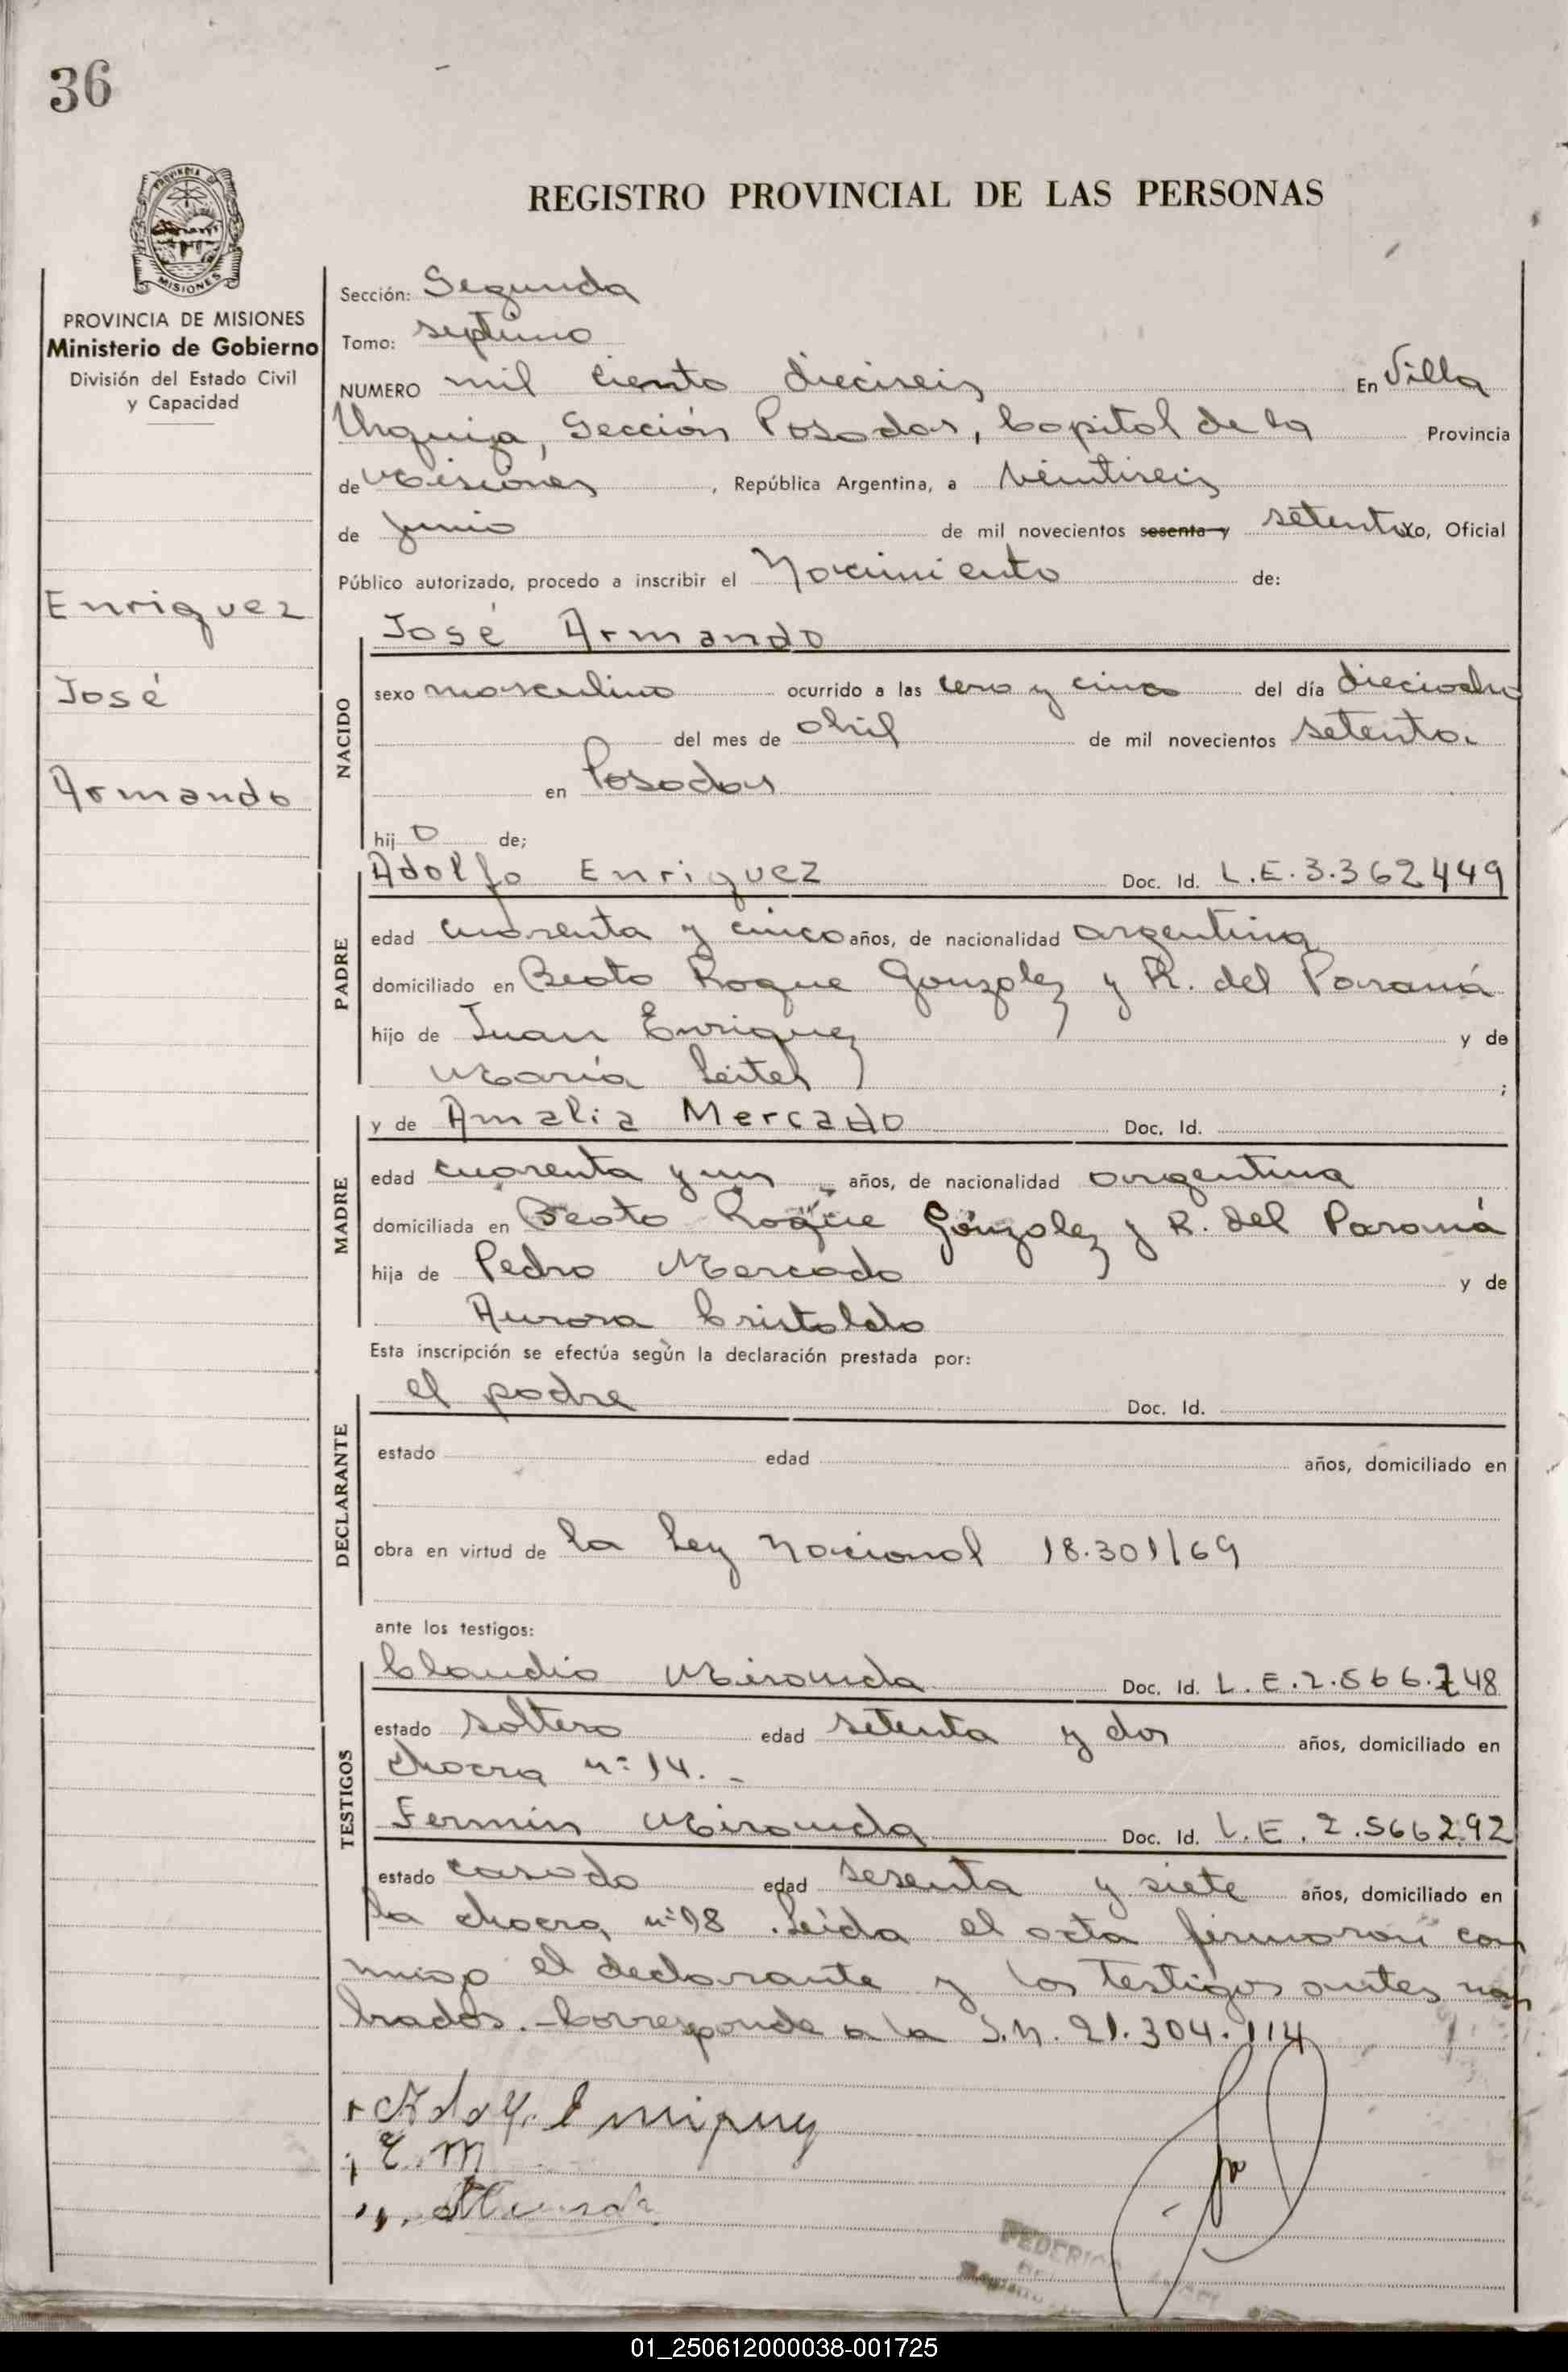 36
PROVINCIA DE MISIONES
Ministerio de Gobierno
División del Estado Civil
y Capacidad
Enriquez
José
Armando
REGISTRO PROVINCIAL DE LAS PERSONAS
Sección: Segunda
Tomo: septimo
NUMERO mil ciento dieciseis En Villa
Urquiza, Sección Posadas, Capital de la Provincia
de Misiones, República Argentina, a veintiseis
de junio de mil novecientos sesenta y setenta yo, Oficial
Público autorizado, procedo a inscribir el Nacimiento de:
José Armando
NACIDO
sexo masculino ocurrido a las cero y cinco del día dieciocho
del mes de abril de mil novecientos setenta.
en Posadas
hijo de;
Adolfo Enriquez Doc. Id. L.E.3.362449
PADRE
edad cuarenta y cinco años, de nacionalidad argentina
domiciliado en Beato Roque Gonzalez y R. del Paraná
hijo de Juan Enriquez y de
María Leites ;
y de Amalia Mercado Doc. Id.
MADRE
edad cuarenta y un años, de nacionalidad argentina
domiciliada en Beato Roque Gonzalez y R. del Paraná
hija de Pedro Mercado y de
Aurora Cristaldo
Esta inscripción se efectúa según la declaración prestada por:
el padre Doc. Id.
DECLARANTE
estado edad años, domiciliado en
obra en virtud de la Ley Nacional 18.301/69
ante los testigos:
Claudio Miranda Doc. Id. L.E.2.566.748
TESTIGOS
estado soltero edad setenta y dos años, domiciliado en
chacra nº 14. -
Fermín Miranda Doc. Id. L.E. 2.566292
estado casado edad sesenta y siete años, domiciliado en
la chacra nº 98. Leída el acta firmaron con
migo el declarante y los testigos antes nom
brados. - Corresponde a la I.N. 21.304.114
Adolfo Enriquez
E. M
FEDERICO
01_250612000038-001725